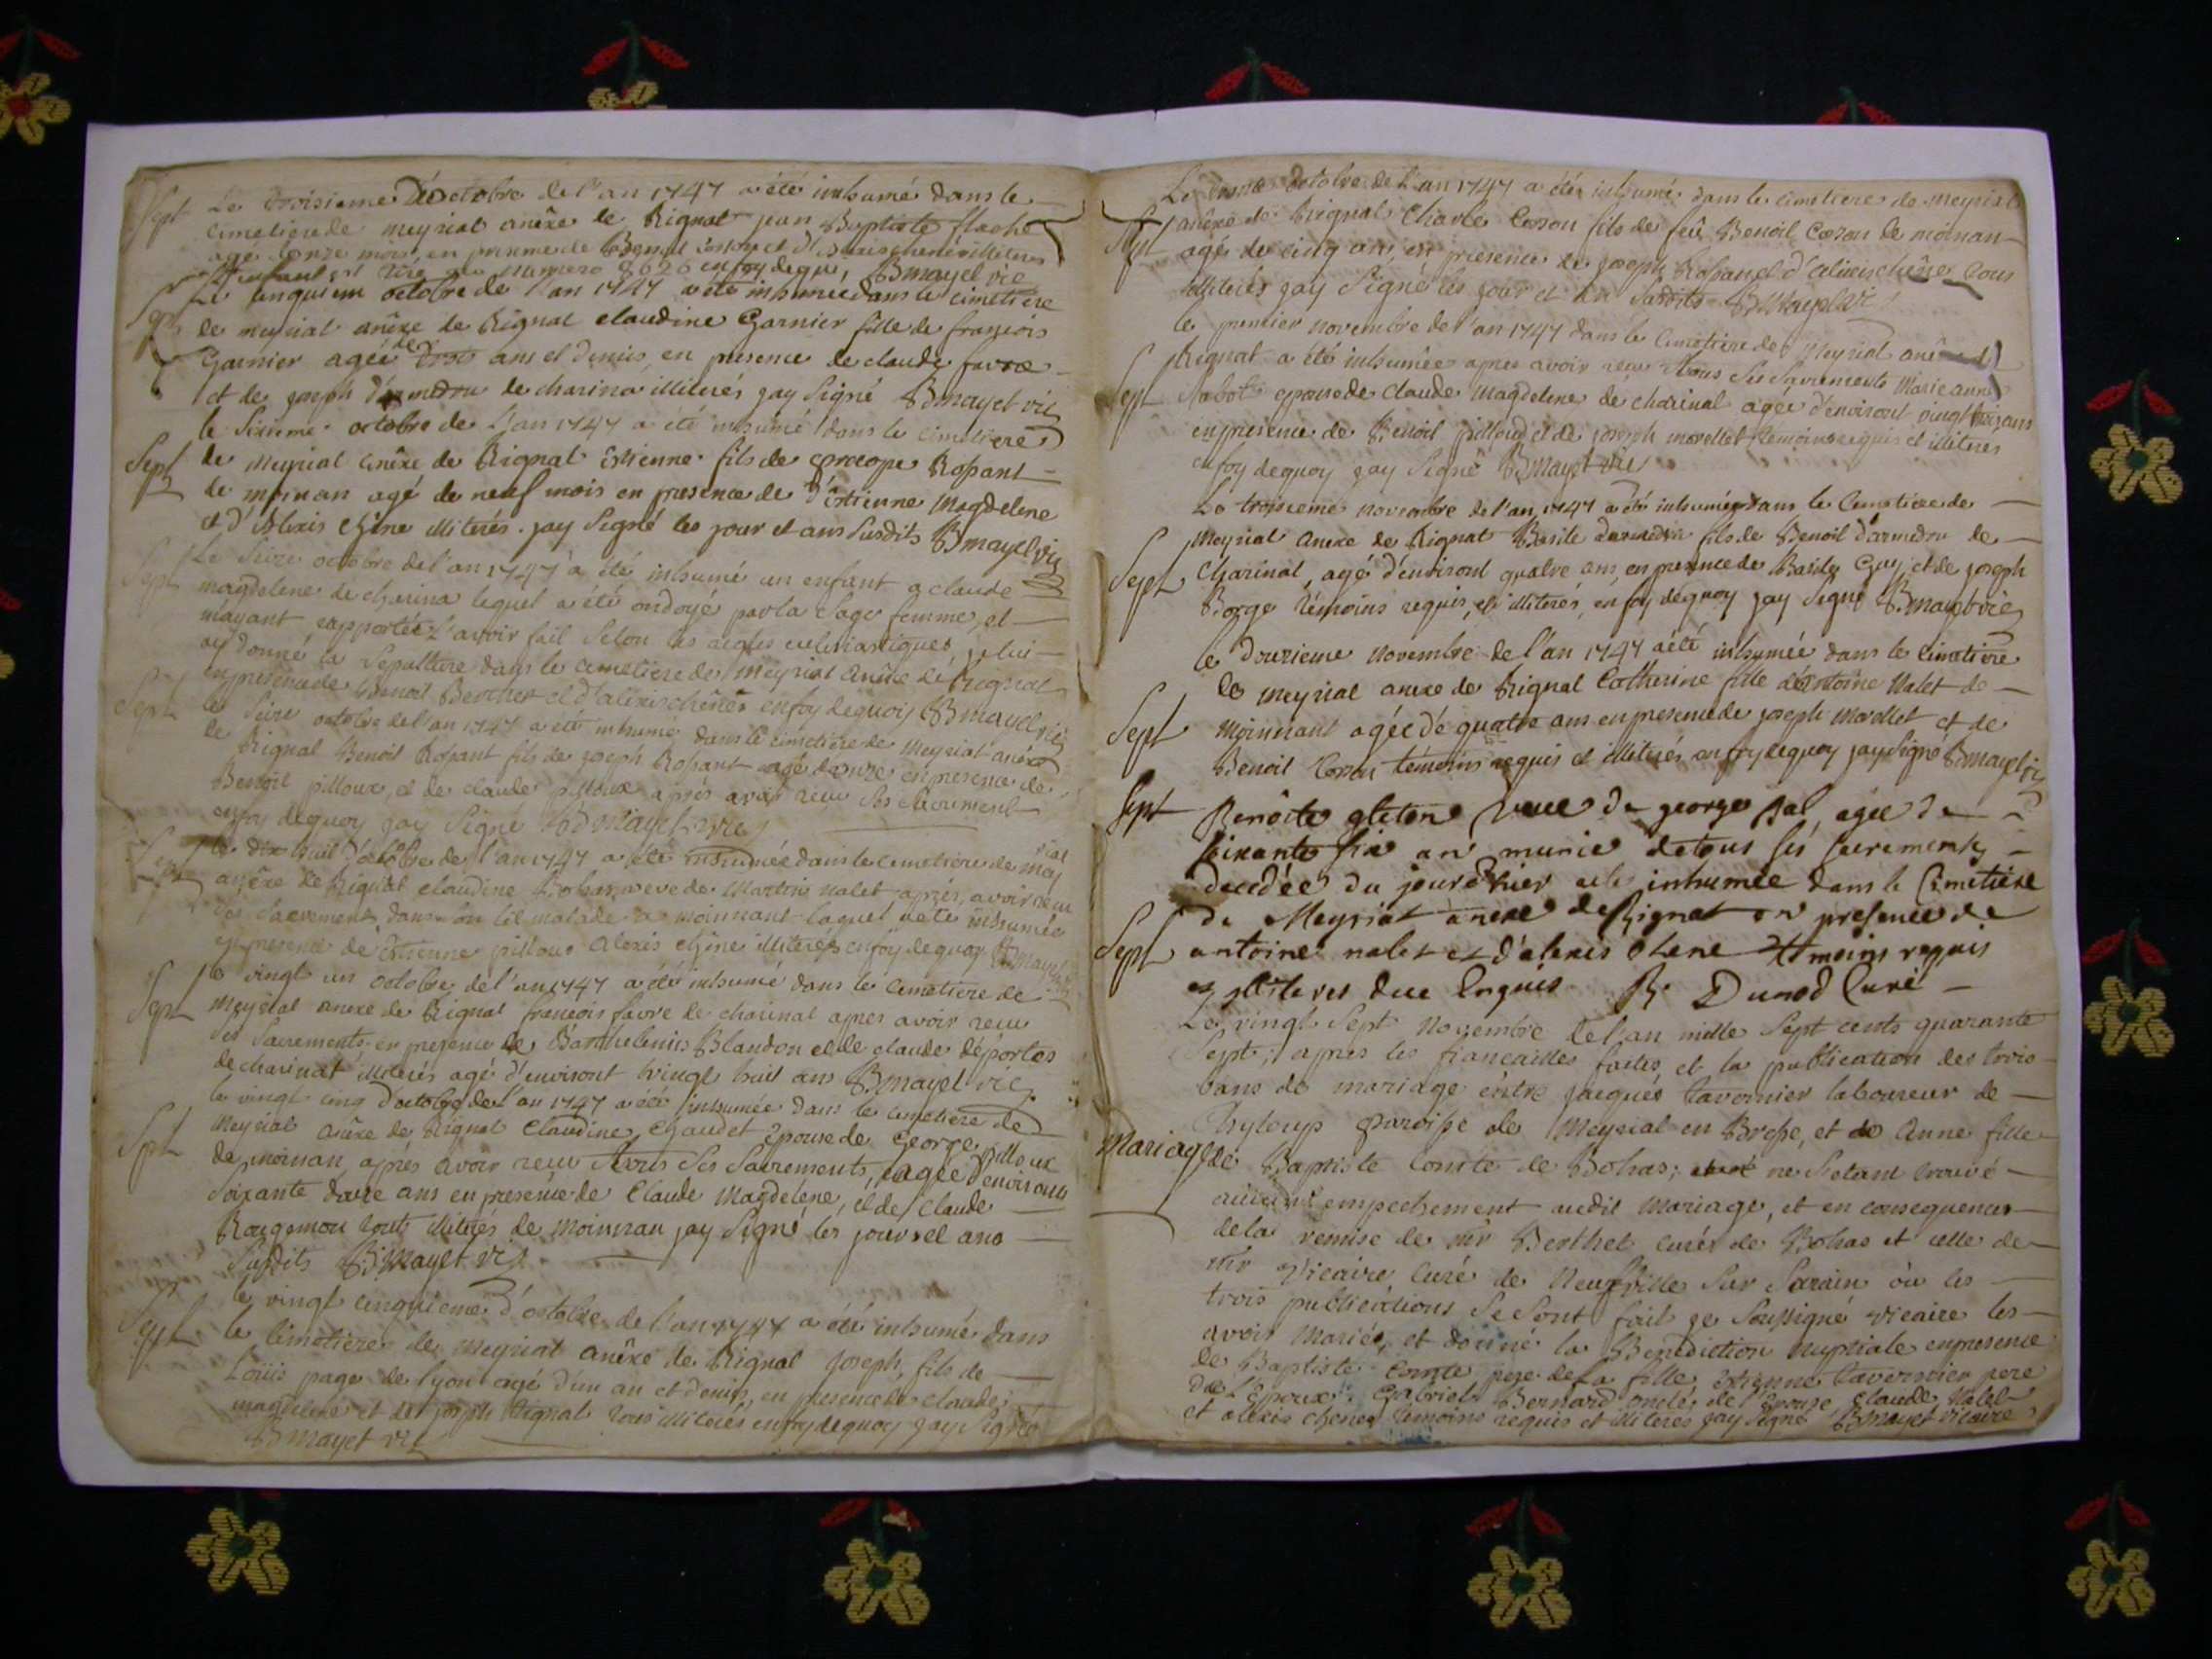 Sept Le troisieme d'octobre de l'an 1747 a été inhumé dans le
cimetiere de meyriat anêxe de Rignat jean Baptiste flache
agé d'onze mois, en presence de Benoit et d'alexis chene illiteres
L'enfant est numero 8626 en foy de quoy, Bmayet vic
Sept Le cinquieme octobre de l'an 1747 a été inhumée dans le cimetiere
de meyriat anêxe de Rignat claudine Garnier fille de françois
Garnier agée de trois ans et demis, en presence de claude favre
et de joseph d'armedru de charina illiterés jay Signé Bmayet vic
le Sixieme octobre de l'an 1747 a été inhumé dans le cimetiere
Sept de Meyriat anêxe de Rignat Estienne fils de procope Rossant
de moinan agé de neuf mois en presence de d'Estienne Magdelene
et d'Alexis Chêne illiterés. jay Signé les jour et ans Susdits Bmayet vic
Sept Le Seize octobre de l'an 1747 a été inhumé un enfant a claude
magdelene de charina lequel a été ondoyé par la Sage femme, et
mayant rapportée l'avoir fait Selon les regles eclesiastiques, je lui
ay donné la Sepulture dans le cimetiere de Meyriat anêxe de Rignat
en presence de Benoit Berthet et d'alexis chêne en foy de quoy Bmayet vic
Sept le Seize octobre de l'an 1747 a été inhumé dans le cimetiere de Meyriat anêxe
de Rignat Benoit Rossant fils de joseph Rossant agé d'onze en presence de
Benoit pilloux, et de claude pilloux après avoir reçu Ses Sacrements
en foy de quoy jay Signé Bmayet vic
Sept Le dix huit d'octobre de l'an 1747 a été inhumée dans le cimetiere de mey riat
anêxe de Rignat claudine Bohas veve de Martin nalet après, avoir reçu
Ses Sacrements dans Son lit malade a moinnant laquel a été inhumée
en presence de Estienne pilloux Alexis chêne illiterés en foy de quoy Bmayet
Sept le vingt un octobre de l'an 1747 a été inhumé dans le cimetiere de
Meyriat anêxe de Rignat françois favre de charinat apres avoir reçu
Ses Sacrements en presence de Barthelemis Blandon et de claude déportes
de charinat illiterés agé d'environt vingt huit ans Bmayet vic
le vingt cinq d'octobre de l'an 1747 a été inhumée dans le cimetiere de
Sept Meyriat anêxe de Rignat Claudine Chaudet Epouse de George pilloux
de moinan, après avoir reçu tous Ses Sacrements, agée d'environs
Soixante douze ans en presence de Claude Magdelene, et de Claude
Rougemon tout illiterés de Moinnan jay Signé les jours et ans
Susdits Bmayet vic
le vingt cinquieme d'octobre de l'an 1747 a été inhumé dans
Sept le cimetiere de Meyriat anêxe de Rignat Joseph, fils de
Louis page de lyon agé d'un an et demis, en presence de claude
magdelene et de joseph Rignat tous illiterés en foy de quoy jay Signé
Bmayet vic
Le octobre de l'an 1747 a été inhumé dans le cimetiere de meyriat
Sept anêxe de Rignat Charle Corson fils de feû Benoit de moinan
agé de cinq ans, en presence de joseph Rossan et d'alexis chêne tous
illiterés jay Signé les jour et an Susdits Bmayet vic
le premier novembre de l'an 1747 dans le cimetiere de Meyriat anêxe de
Rignat a été inhumée apres avoir reçu tous Ses Sacrements Marie anne
Sept epouse de Claude Magdelene de charinat agée d'environt vingt ans
en presence de Benoit pilloux et de joseph morellet temoins requis et illiterés
en foy de quoy jay Signé Bmayet vic
Le troisieme novembre de l'an 1747 a été inhumé dans le Cimetiere de
Meyriat anexe de Rignat Basile darmedru fils de Benoit d'armedru de
Sept Charinat, agé d'environt quatre ans, en presence de Basile Guy et de joseph
Borge témoins requis, et illiterés, en foy de quoy jay Signé Bmayet vic
le Douzieme Novembre de l'an 1747 a été inhumée dans le cimetiere
de Meyriat anexe de Rignat Catherine fille d'Antoine Nalet de
Sept Moinnant agée de quatre ans en presence de joseph Morellet et de
Benoit Coron témoins requis et illiterés en foy de quoy jay Signé Bmayet vic
Sept Benoite gleton veue de george pal agée de
soixante six ans munie de tous ses sacrements
decedée du jour d'hier a été inhumée dans le Cimetiere
de Meyriat anexe de Rignat en presence de
Sept antoine nalet et d'alexis chene temoins requis
et illiteres due enquis B. Dunod Curé
Le vingt Sept Novembre de l'an mille Sept cents quarante
Sept; apres les fiancailles faites, et la publication des trois
bans de mariage entre jacques tavernier laboureur de
paroisse de Meyriat en Bresse, et de Anne fille
Mariage de Baptiste Comte de Bohas; ne S'etant trouvé
aucun empechement audit Mariage, et en consequence
de la remise de mr Berthet curés de Bohas et celle de
mr vicaire, Curé de Neufville Sur Sarain où les
trois publications Se Sont fait je Soussigné vicaire les
avois Mariés, et donné la Benediction Nuptiale en presence
de Baptiste Comte pere de la fille, Estienne tavernier pere
de l'Epoux, Gabriel Bernard oncle de l'Epouse, Claude Nalet
et alexis chene temoins requis et illiteres jay Signé Bmayet vicaire